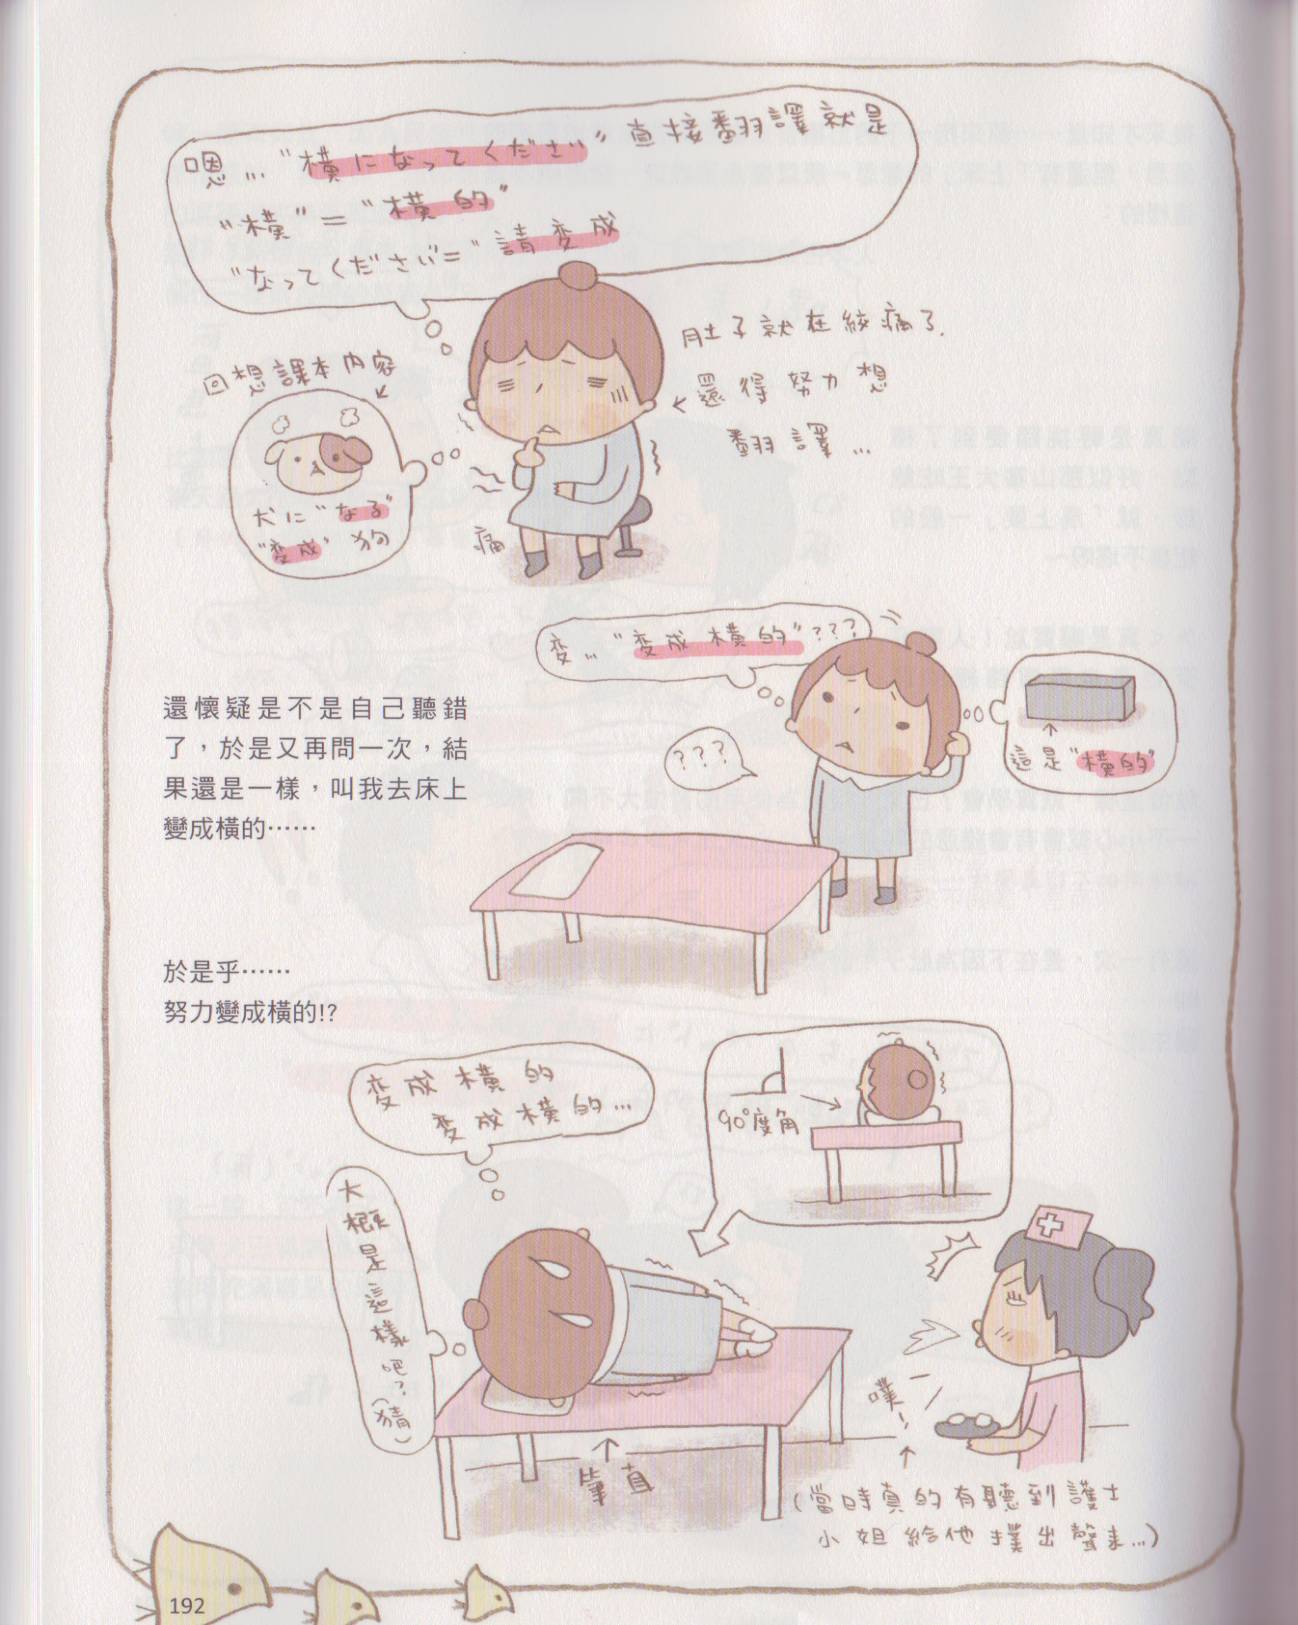 嗯…"横になってください"直接翻譯就是
"横"="橫的"
"なってください"="請変成
肚子就在絞痛了.
還得努力想
翻譯…
回想課本內容
犬に"なる"
"変成"狗
痛
変…"変成橫的"???
???
這是"橫的"
還懷疑是不是自己聽錯
了，於是又再問一次，結
果還是一樣，叫我去床上
變成橫的……
於是乎……
努力變成橫的!?
変成橫的
変成橫的…
90°度角
大概是這樣吧?(猜)
筆直
噗!
(當時真的有聽到護士
小姐給他撲出聲來…)
192